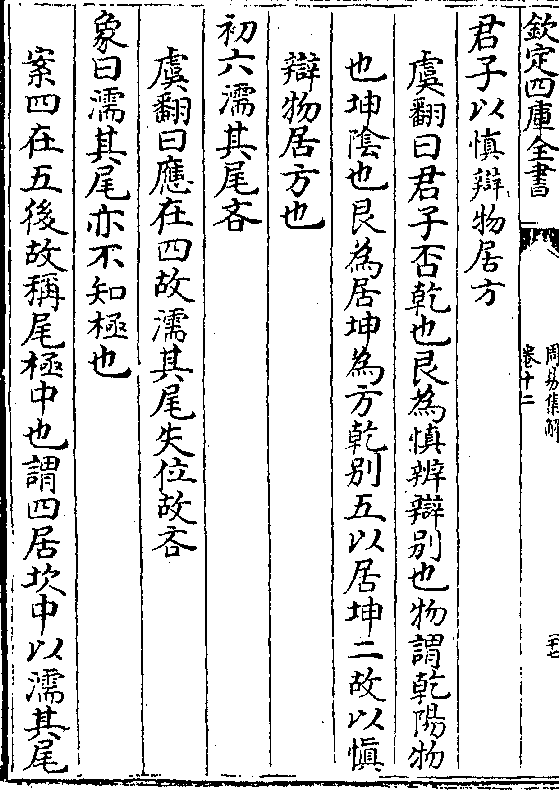 欽定四庫全書
周易集解
卷十二
二十七
君子以慎辯物居方
虞翻曰君子否乾也艮為慎辨辯別也物謂乾陽物
也坤陰也艮為居坤為方乾別五以居坤二故以慎
辯物居方也
初六濡其尾吝
虞翻曰應在四故濡其尾失位故吝
象曰濡其尾亦不知極也
案四在五後故稱尾極中也謂四居坎中以濡其尾